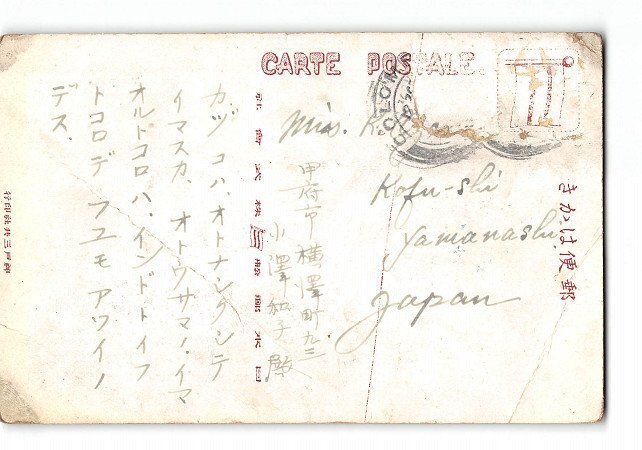 CARTE POSTALE.
きかは便郵
COLOM
Miss. K
Kofu-shi
Yamanashi
Japan
甲府市横澤町九三
小澤和子殿
カヅコハオトナシクシテ
イマスカ、オトウサマノイマ
オルトコロハ、インドトイフ
トコロデフユモアツイノ
デス